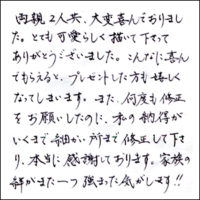 両親2人共、大変喜んでおりまし
た。とても可愛らしく描いて下さって
ありがとうございました。こんなに喜ん
でもらえると、プレゼントした方も嬉しく
なってしまいます。また、何度も修正
をお願いしたのに、私の納得が
いくまで細かい所まで修正して下さ
り、本当に感謝しております。家族の
絆がまた一つ強まった気がします!!